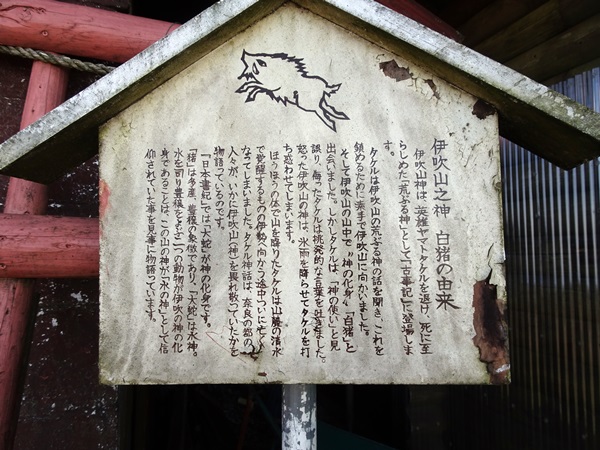 伊吹山之神 白猪の由来
伊吹山神は、英雄ヤマトタケルを退け、死に至
らしめた「荒ぶる神」として「古事記」に登場しま
す。
タケルは伊吹山の荒ぶる神の話を聞き、これを
鎮めるために素手で伊吹山に向かいました。
そして伊吹山の山中で“神の化身”「白猪」と
出会いました。しかしタケルは、「神の使い」と見
誤り、侮ったタケルは挑発的な言葉を吐きました。
怒った伊吹山の神は、氷雨を降らせてタケルを打
ち惑わせてしまいます。
ほうほうの体で山を降りたタケルは山麓の清水
で覚醒するものの伊勢へ向かう途中ついに亡く
なってしまいました。タケル神話は、奈良の都の
人々が、いかに伊吹山(神)を畏れ敬っていたかを
物語っているのです。
『日本書記』では「大蛇」が神の化身です。
「猪」は多産、豊穣の象徴であり、「大蛇」は水神。
水を司り豊穣をもたらす二つの動物が伊吹の神の化
身であることは、この山の神が「水の神」として信
仰されていた事を見事に物語っています。